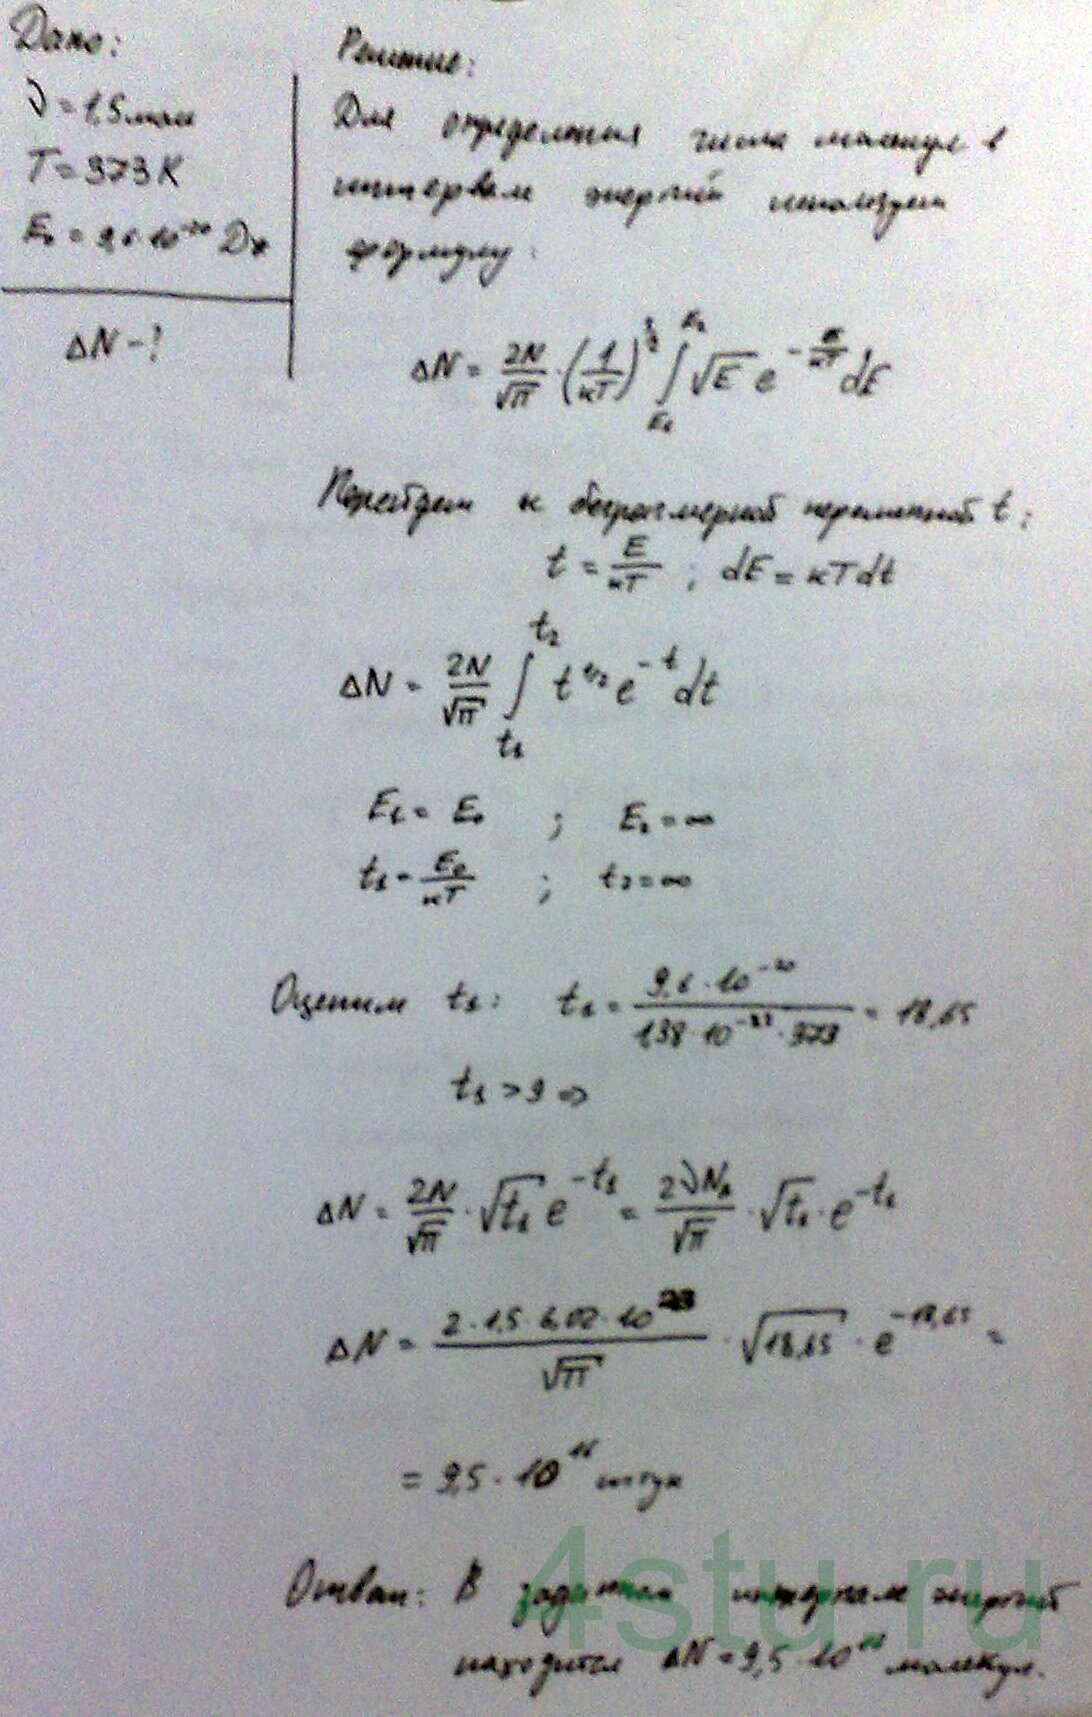 Дано:
ν = 1,5 моль
T = 373 K
E₀ = 9,6 · 10⁻²⁰ Дж
ΔN - ?
Решение:
Для определения числа молекул в
интервале энергий используем
формулу:
ΔN = 2N/√π · (1/кT)^(3/2) ∫_(E₁)^(E₂) √E e^(-E/кT) dE
Перейдем к безразмерной переменной t:
t = E/кT ; dE = кT dt
ΔN = 2N/√π ∫_(t₁)^(t₂) t^(1/2) e^(-t) dt
E₁ = E₀ ; E₂ = ∞
t₁ = E₀/кT ; t₂ = ∞
Оценим t₁: t₁ = 9,6 · 10⁻²⁰ / 1,38 · 10⁻²³ · 373 = 18,65
t₁ > 9 =>
ΔN = 2N/√π · √t₁ e^(-t₁) = 2νN_A/√π · √t₁ · e^(-t₁)
ΔN = 2 · 1,5 · 6,02 · 10²³ / √π · √18,65 · e^(-18,65) =
= 3,5 · 10¹⁶ штук
Ответ: В заданном интервале энергий
находится ΔN = 3,5 · 10¹⁶ молекул.
4stu.ru